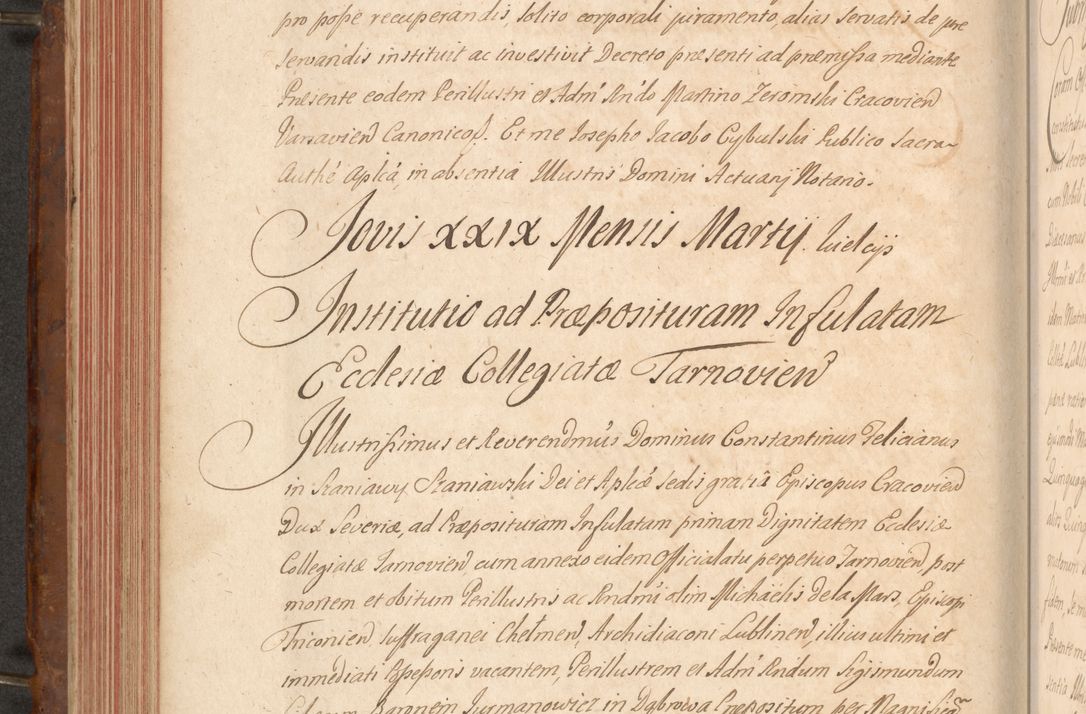 pro posse recuperandis, solito corporali juramento, alias servatis de jure
servandis instituit ac investivit Decreto præsenti ad præmissa mediante
Præsente eodem Perillustri et Adm Rndo Martino Zeromski Cracovien
Varsavien Canonico. Et me Josepho Jacobo Cybulski Publico Sacra
Authē Aplcā, in absentia Illustris Domini Actuarij Notario.
Jovis XXIX Mensis Martij. Kielcijs
Institutio ad Præposituram Infulatam
Ecclesiæ Collegiatæ Tarnovien
Illustrissimus et Reverendmus Dominus Constantinus Felicianus
in Szaniawy Szaniawski Dei et Aplcæ Sedis gratiâ Episcopus Cracovien
Dux Severiæ, ad Præposituram Infulatam primam Dignitatem Ecclesiæ
Collegiatæ Tarnovien cum annexo eidem Officialatu perpetuo Tarnovien, post
mortem et obitum Perillustris ac Rndmi olim Michaëlis de la Mars, Episcopi
Triconien Suffraganei Chelmen, Archidiaconi Lublinen, illius ultimi et
immediati Possessoris vacantem, Perillustrem et Adm Rndum Sigismundum
Baronem Jurmanowicz in Dąbrowa Præpositum per Magnificū